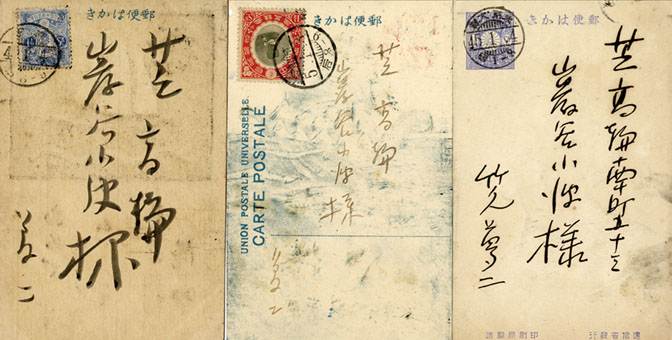 郵便はかき
芝高輪
巌谷小波様
夢二
郵便はかき
UNION POSTALE UNIVERSELLE
CARTE POSTALE
芝高輪
巌谷小波様
夢二
郵便はかき
芝高輪南町五十三
巌谷小波様
竹久夢二
印刷局製造